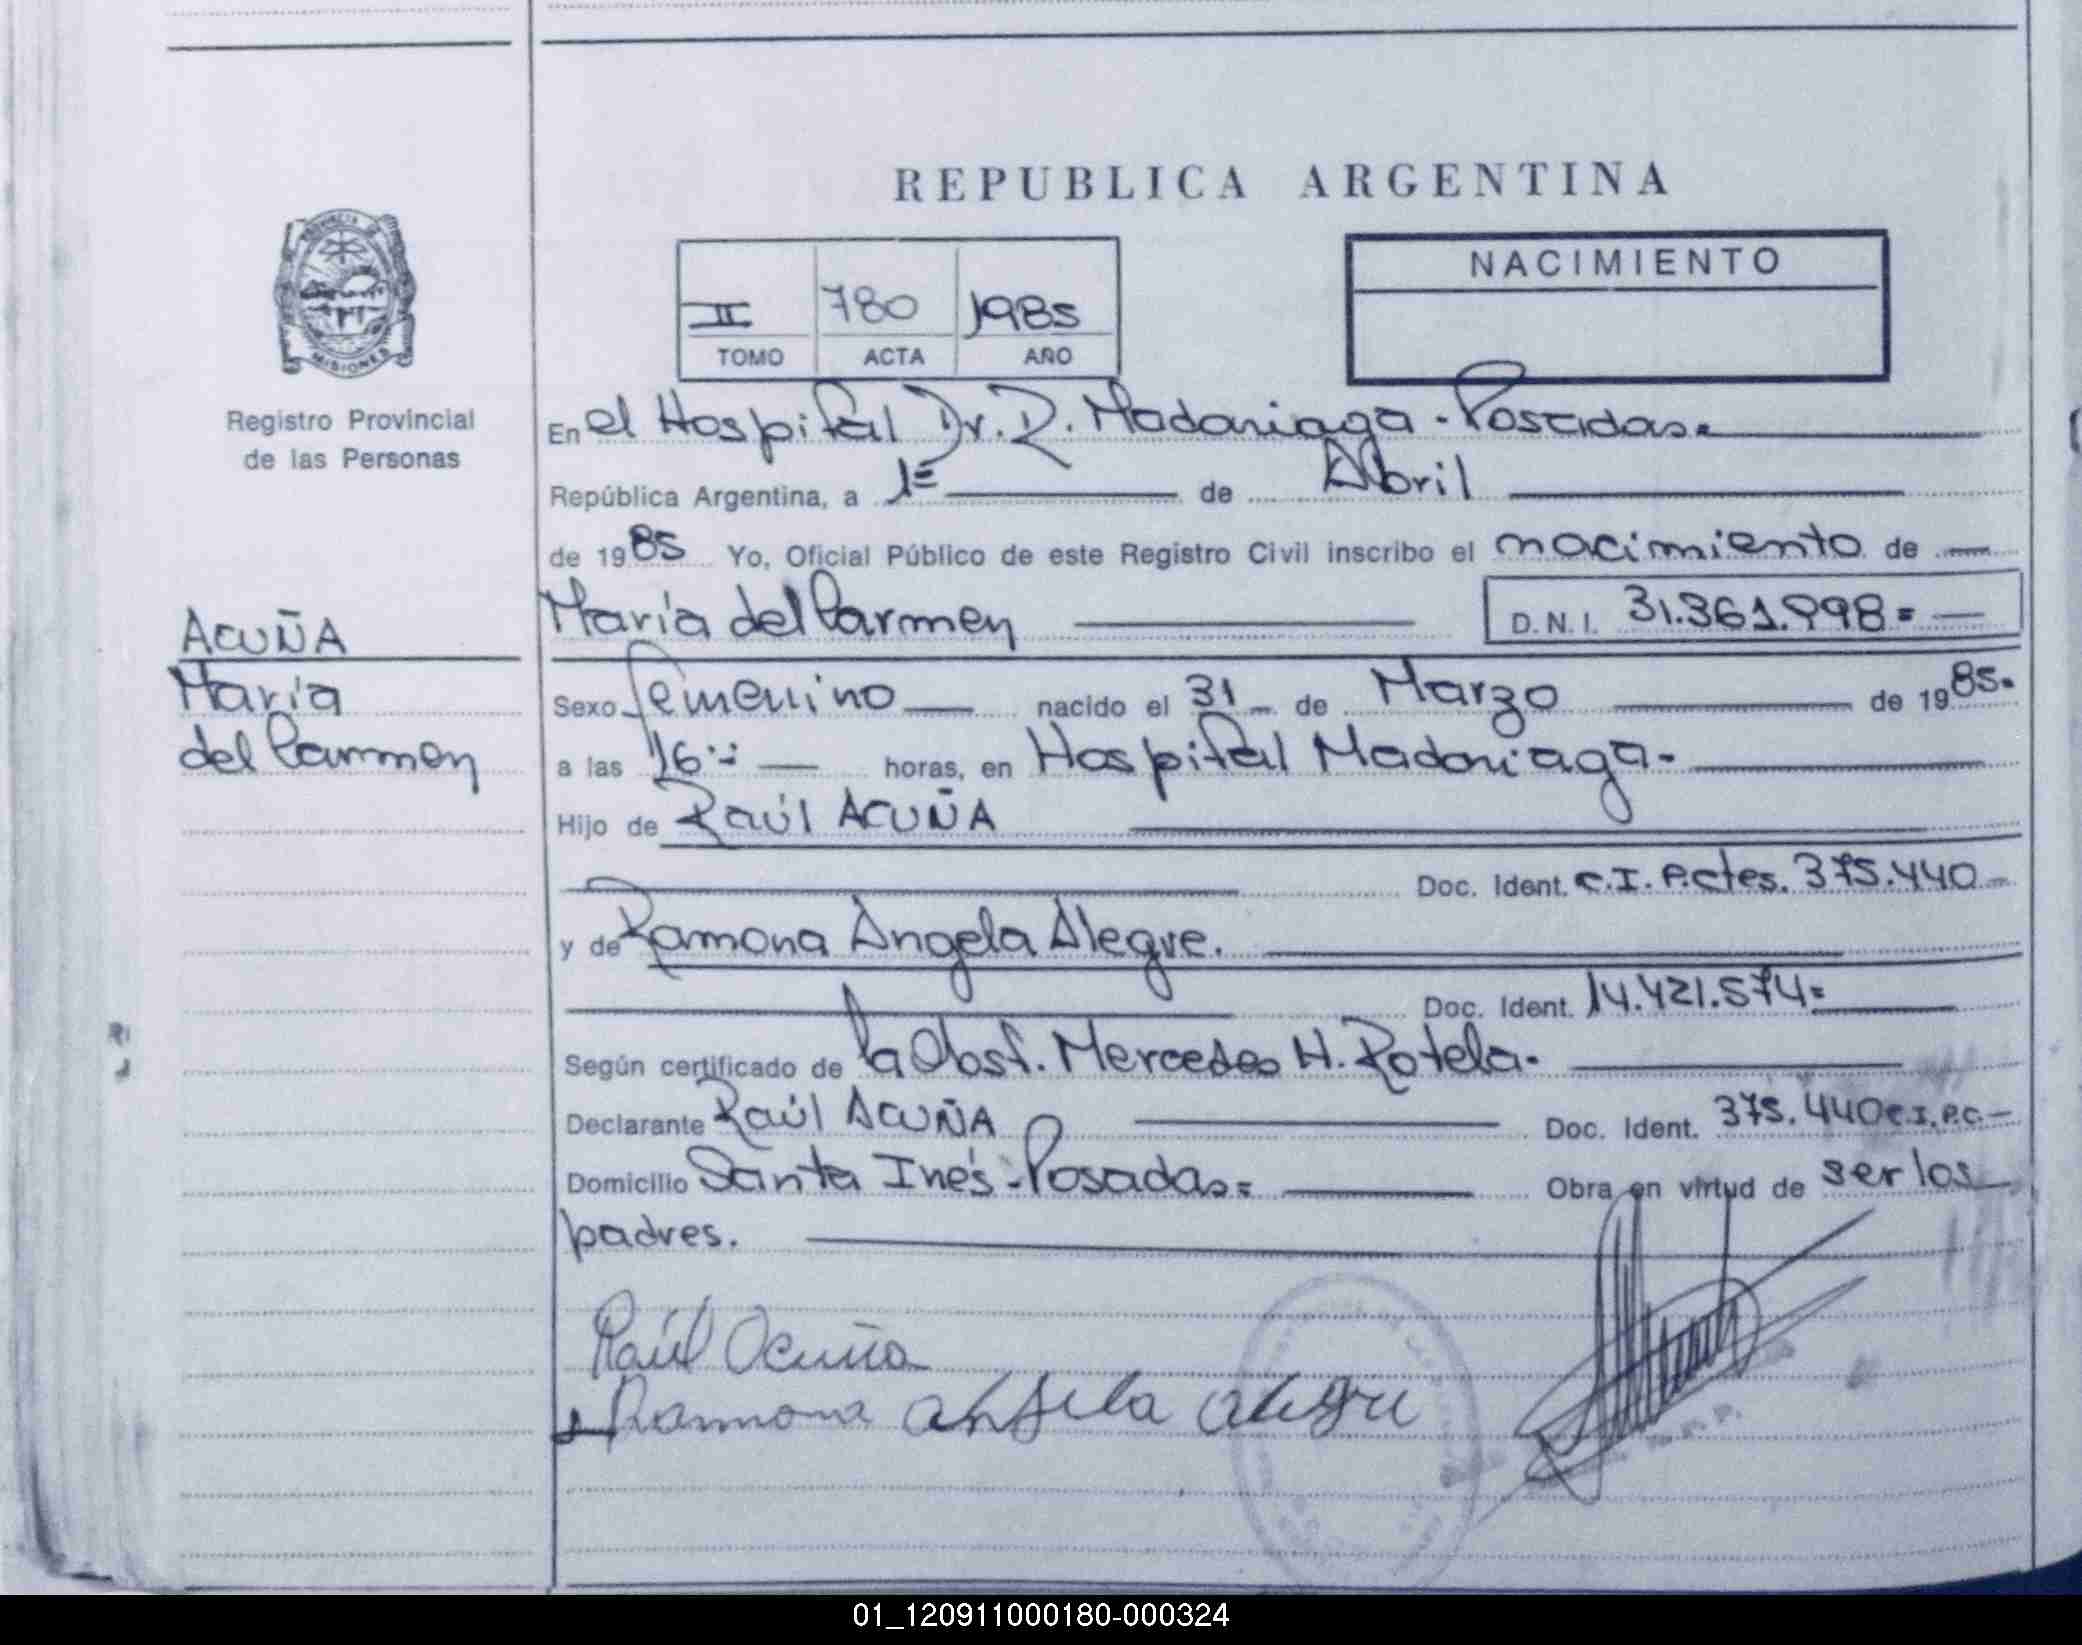 REPUBLICA ARGENTINA
PROVINCIA DE
MISIONES
Registro Provincial
de las Personas
II 780 1985
TOMO ACTA AÑO
NACIMIENTO
En el Hospital Dr. R. Madariaga - Posadas.
República Argentina, a 1º de Abril
de 1985 Yo, Oficial Público de este Registro Civil inscribo el nacimiento de
ACUÑA
María
del Carmen
María del Carmen D.N.I. 31.361.998=
Sexo femenino nacido el 31 de Marzo de 1985.
a las 16 horas, en Hospital Madariaga.
Hijo de Raúl ACUÑA
Doc. Ident. C.I. P.ctes. 375.440
y de Ramona Angela Alegre.
Doc. Ident. 14.421.574=
Según certificado de la Obst. Mercedes H. Rotela.
Declarante Raúl ACUÑA Doc. Ident. 375.440 C.I. P.C.
Domicilio Santa Inés - Posadas= Obra en virtud de ser los
padres.
Raúl Acuña
Ramona Angela Alegre
01_120911000180-000324